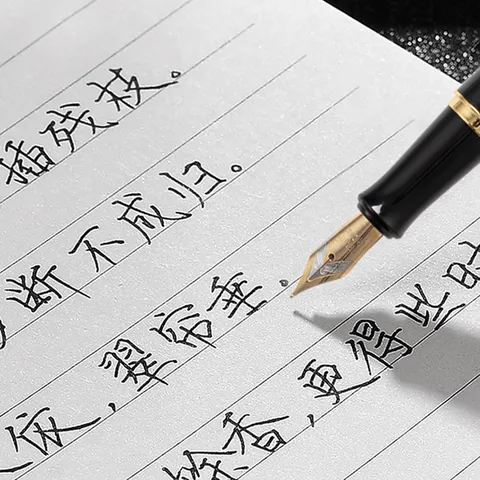 插残枝。
断不成归。
依,翠帘垂。
馀香,更得些时